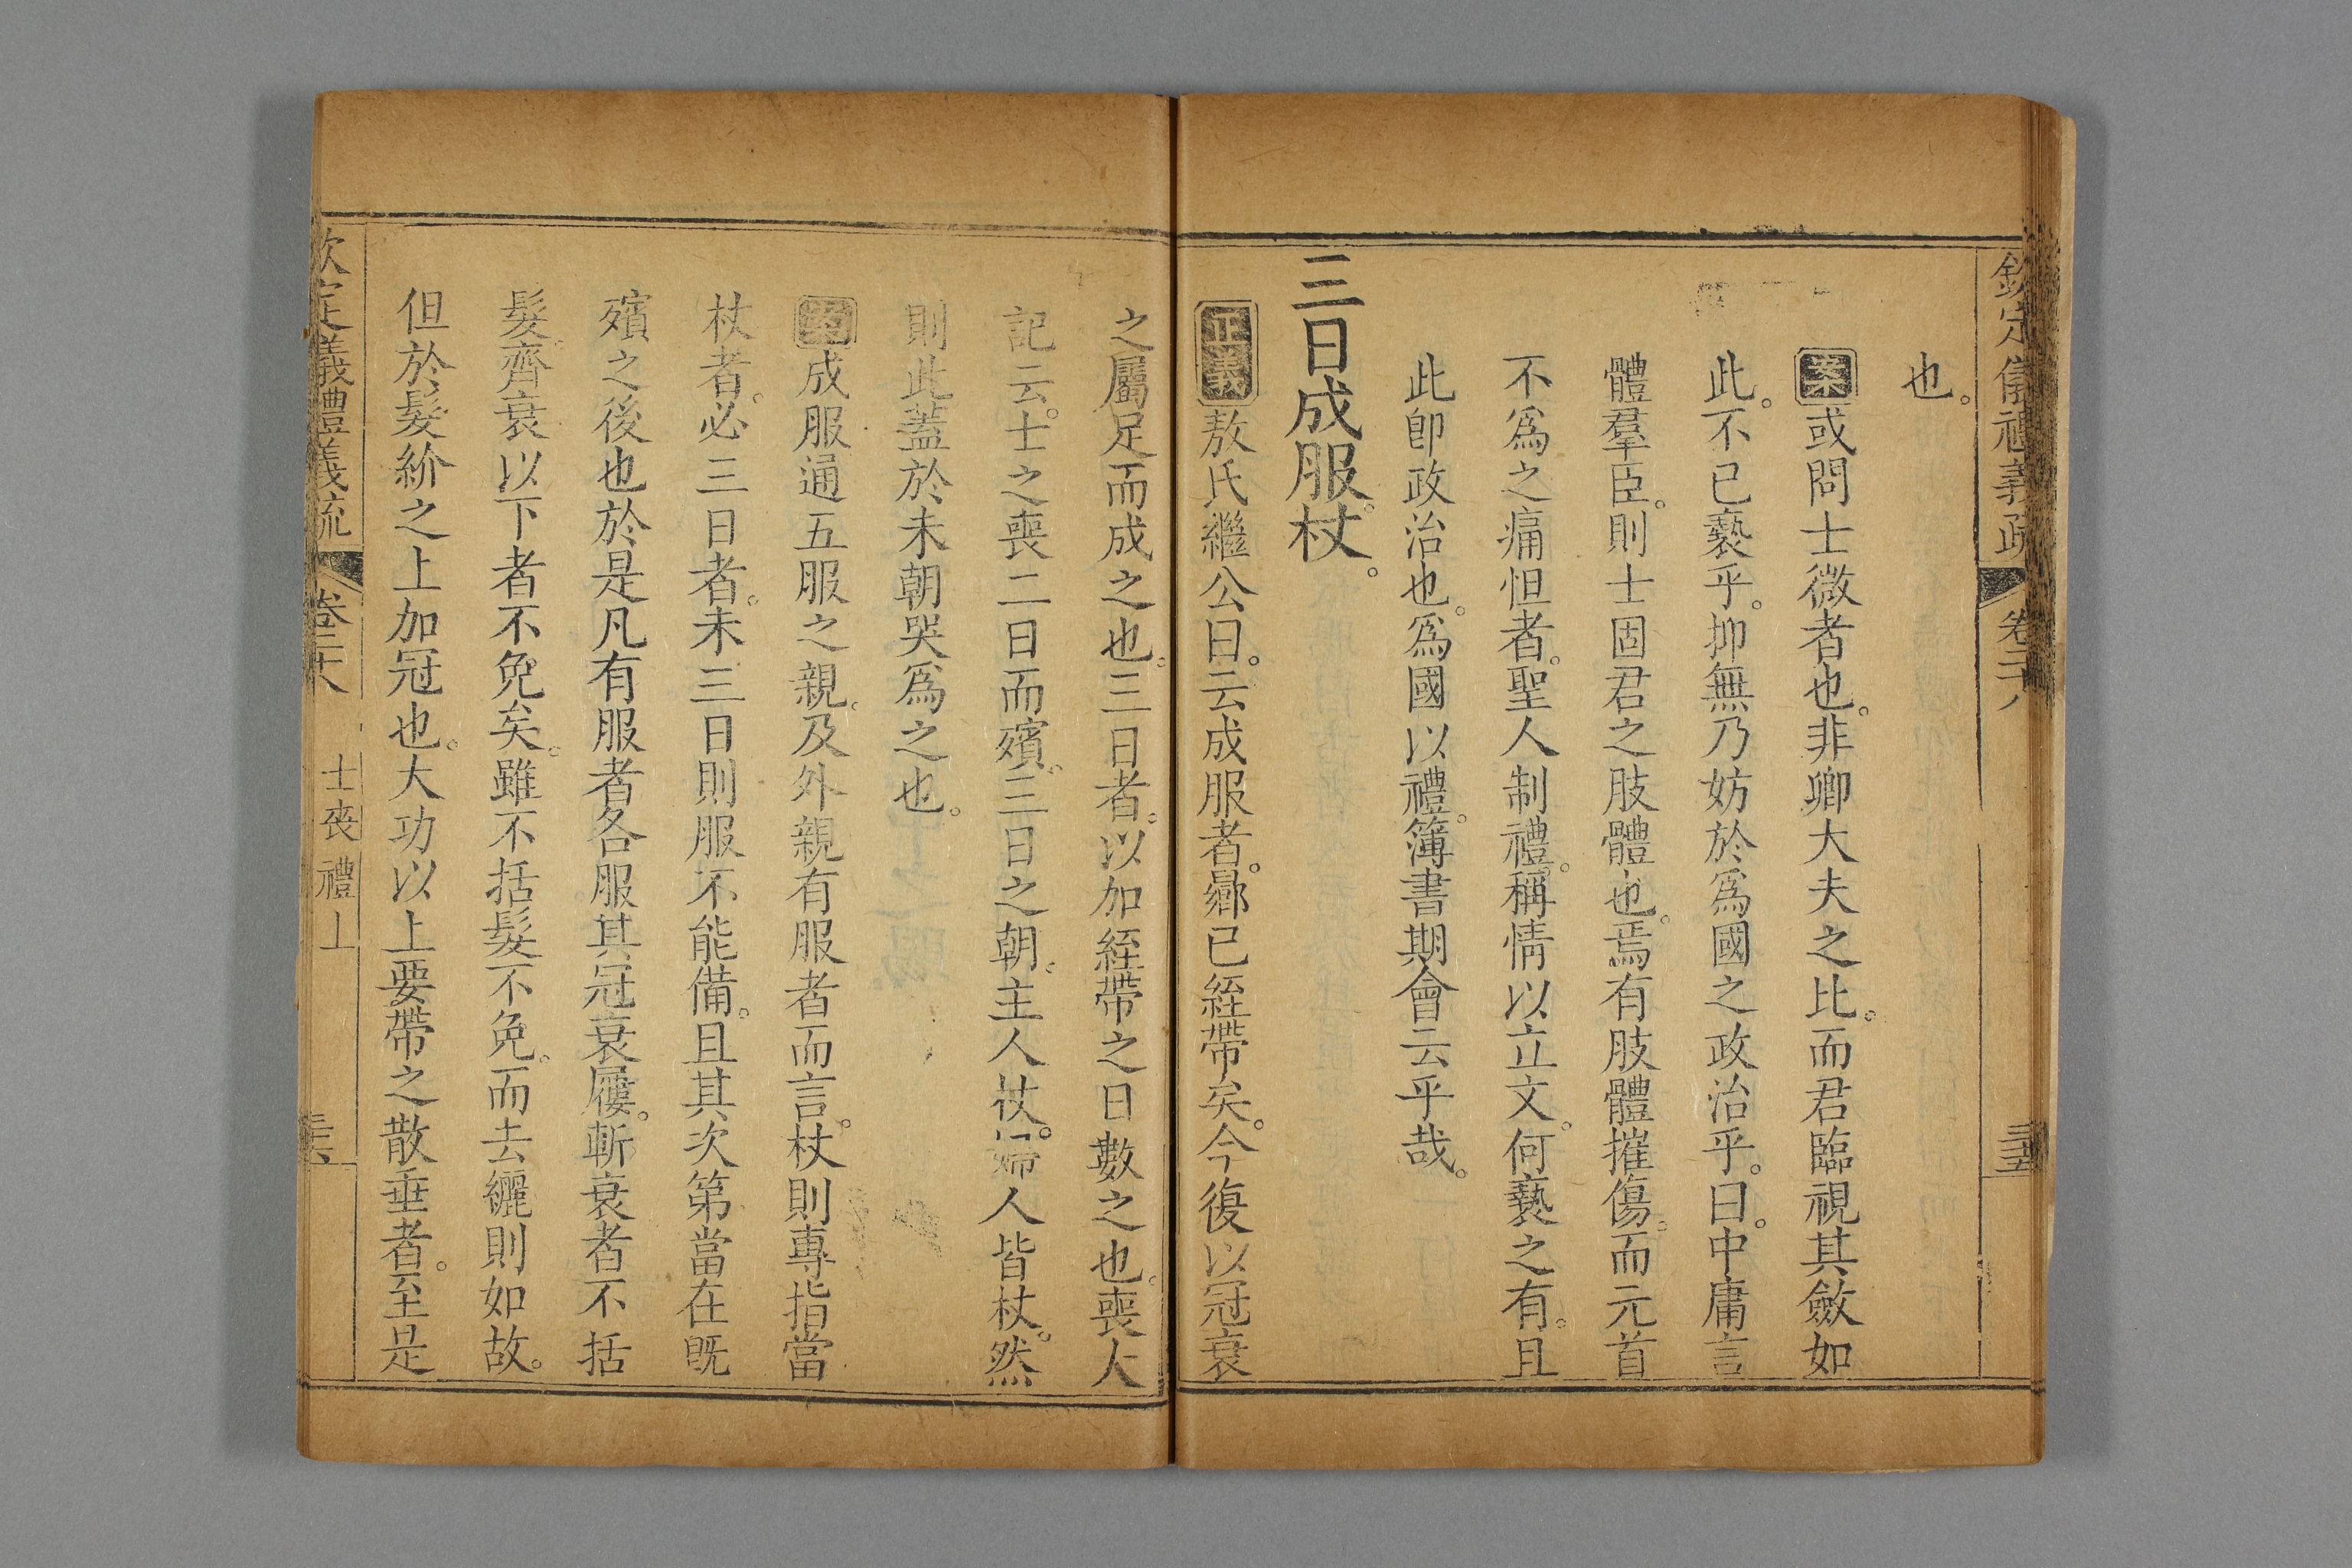 欽定儀禮義疏 卷二十八 三五
也。
案或問士微者也。非卿大夫之比。而君臨視其斂如
此。不已褻乎。抑無乃妨於爲國之政治乎。曰。中庸言
體羣臣。則士固君之肢體也。焉有肢體摧傷。而元首
不爲之痛怛者。聖人制禮。稱情以立文。何褻之有。且
此卽政治也。爲國以禮。簿書期會云乎哉。
三日成服。杖。
正義敖氏繼公曰。云成服者。曏已絰帶矣。今復以冠衰
之屬足而成之也。三日者。以加絰帶之日數之也。喪大
記云。士之喪二日而殯。三日之朝。主人杖。婦人皆杖。然
則此蓋於未朝哭爲之也。
案成服通五服之親。及外親有服者而言。杖則專指當
杖者。必三日者。未三日則服不能備。且其次第當在旣
殯之後也於是凡有服者各服其冠衰屨。斬衰者不括
髮。齊衰以下者不免矣。雖不括髮不免。而去纚則如故。
但於髮紒之上加冠也。大功以上要帶之散垂者。至是
欽定儀禮義疏 卷二十八 士喪禮上 三六